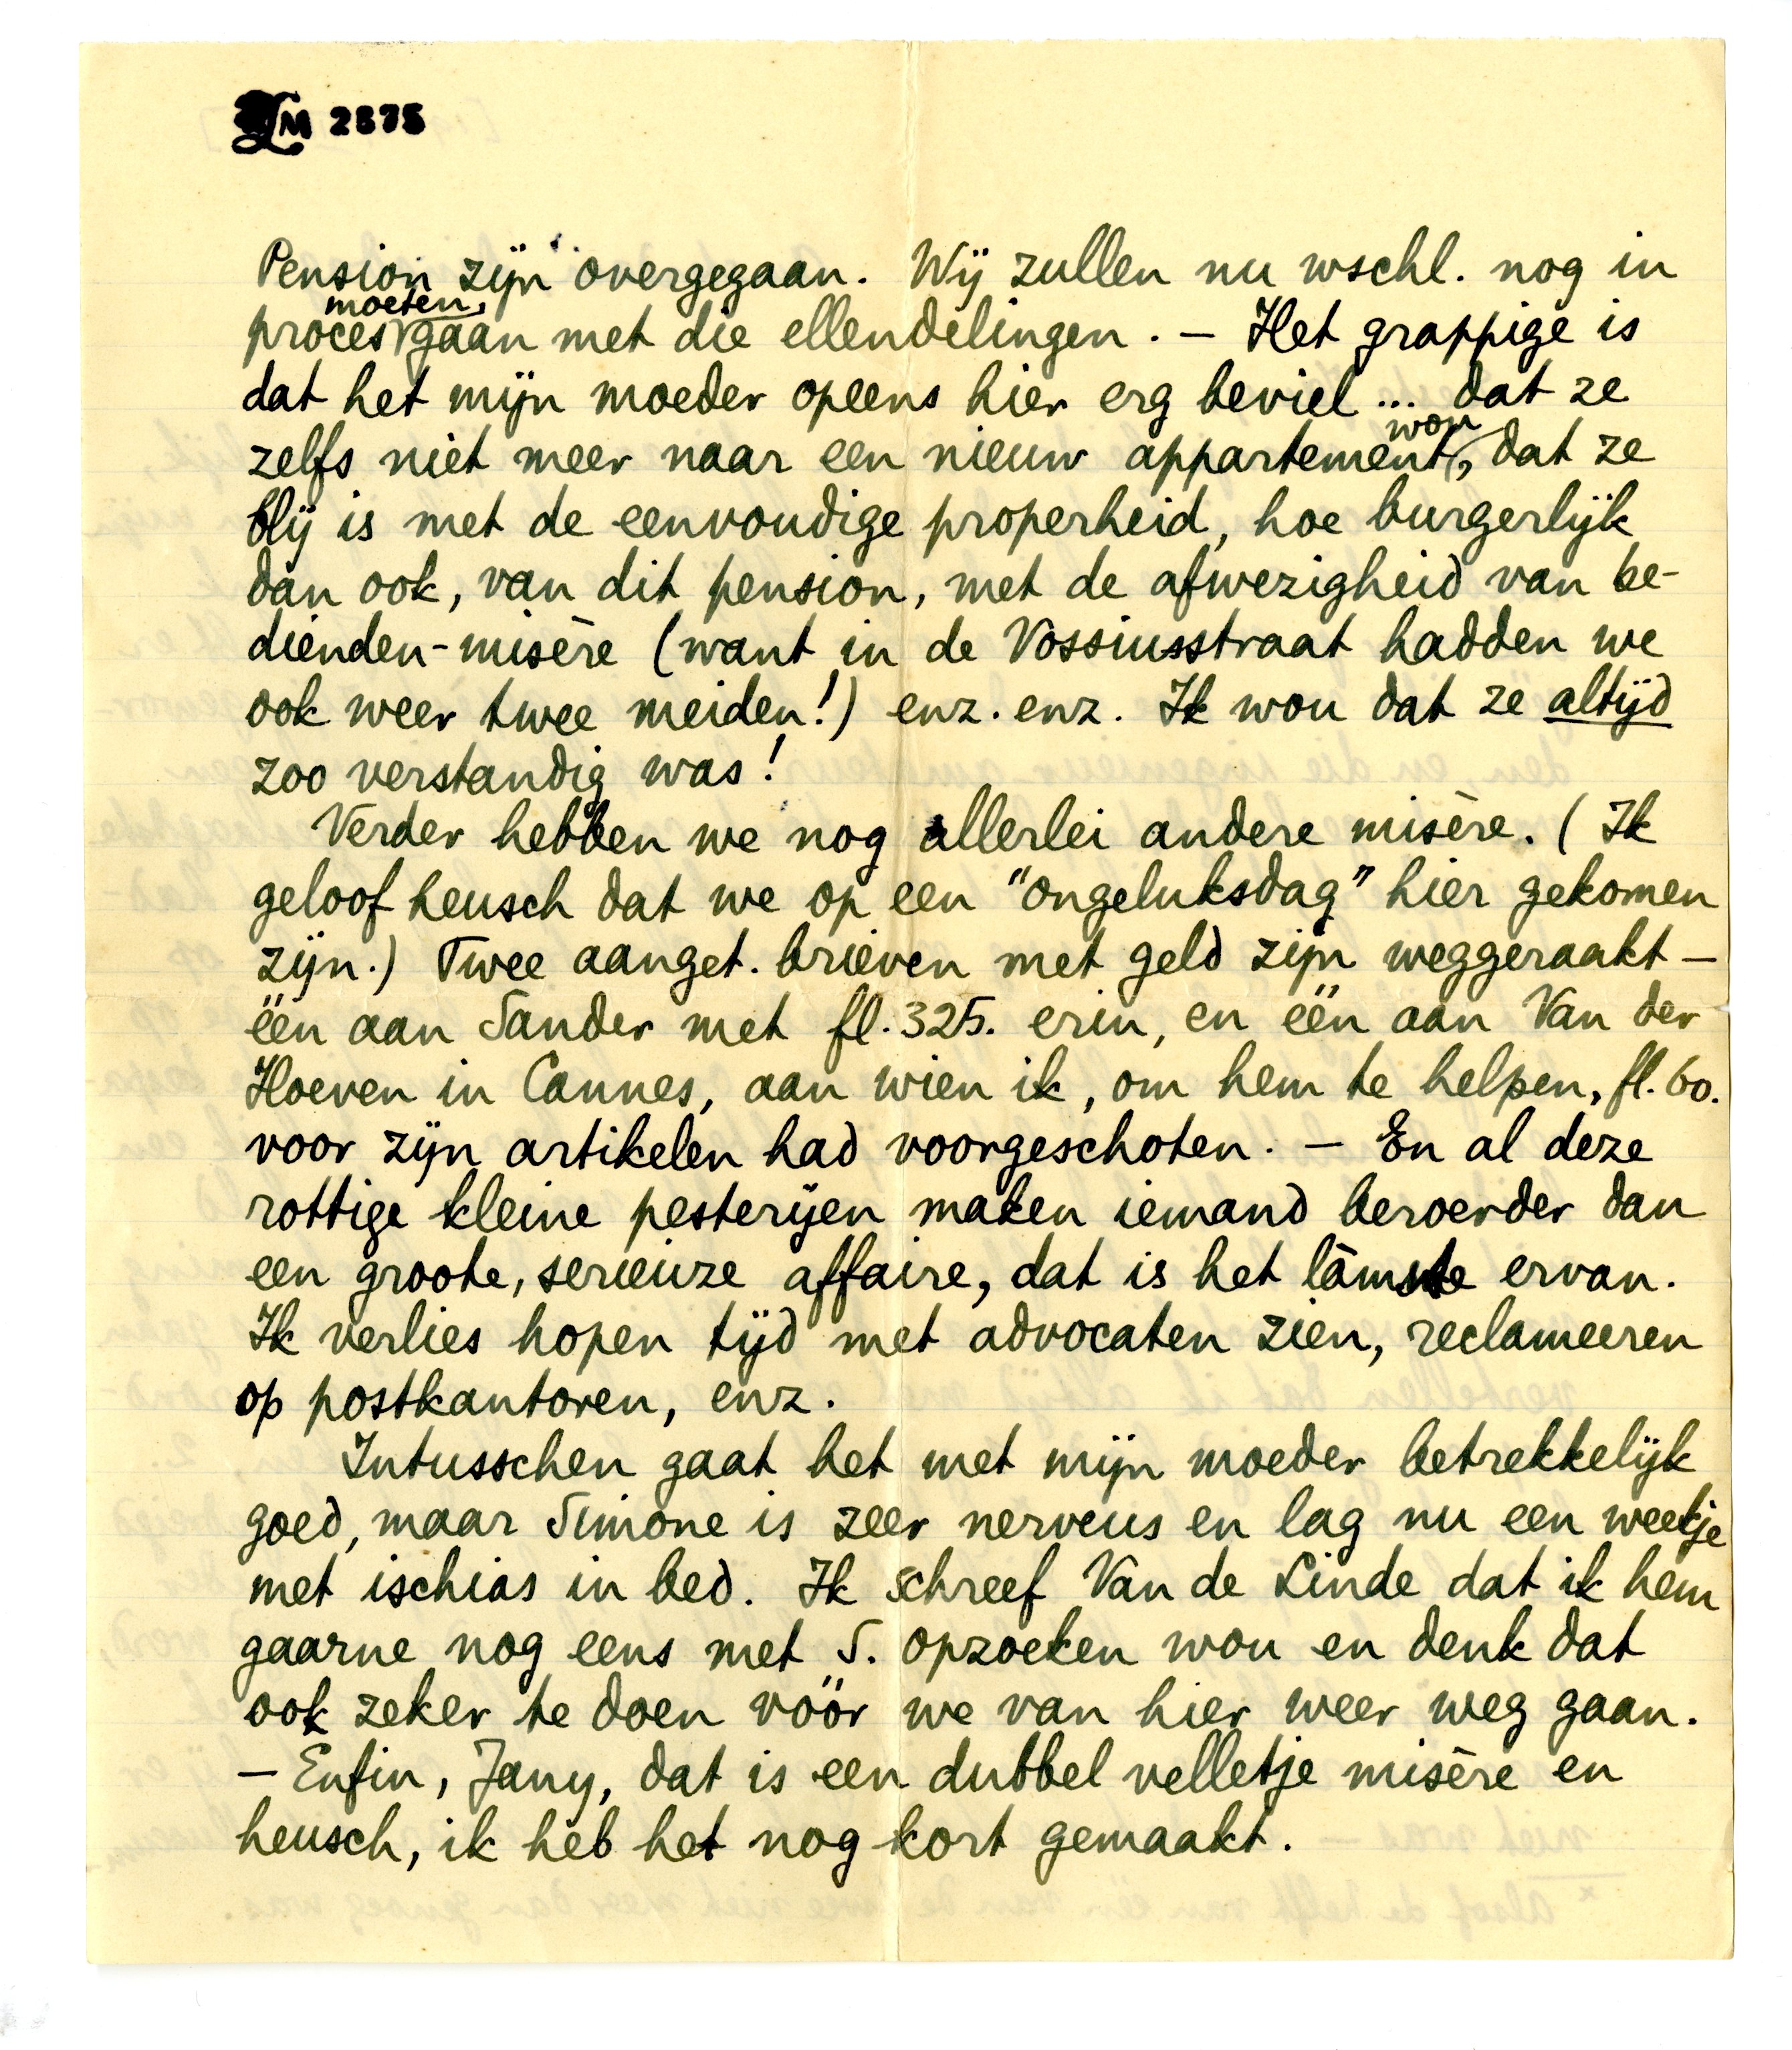 LM 2575
Pension zijn overgegaan. Wij zullen nu wschl. nog in
proces moeten gaan met die ellendelingen. — Het grappige is
dat het mijn moeder opeens hier erg beviel ... dat ze
zelfs niet meer naar een nieuw appartement wou, dat ze
blij is met de eenvoudige properheid, hoe burgerlijk
dan ook, van dit pension, met de afwezigheid van be-
dienden-misère (want in de Vossiusstraat hadden we
ook weer twee meiden!) enz. enz. Ik wou dat ze altijd
zoo verstandig was!
Verder hebben we nog allerlei andere misère. (Ik
geloof heusch dat we op een "ongeluksdag" hier gekomen
zijn.) Twee aanget. brieven met geld zijn weggeraakt —
één aan Sander met fl. 325. erin, en één aan Van der
Hoeven in Cannes, aan wien ik, om hem te helpen, fl. 60.
voor zijn artikelen had voorgeschoten. — En al deze
rottige kleine pesterijen maken iemand beroerder dan
een groote, serieuze affaire, dat is het lamste ervan.
Ik verlies hopen tijd met advocaten zien, reclameeren
op postkantoren, enz.
Intusschen gaat het met mijn moeder betrekkelijk
goed, maar Simone is zeer nerveus en lag nu een weekje
met ischias in bed. Ik schreef Van de Linde dat ik hem
gaarne nog eens met S. opzoeken wou en denk dat
ook zeker te doen vóór we van hier weer weg gaan.
— Enfin, Jany, dat is een dubbel velletje misère en
heusch, ik heb het nog kort gemaakt.